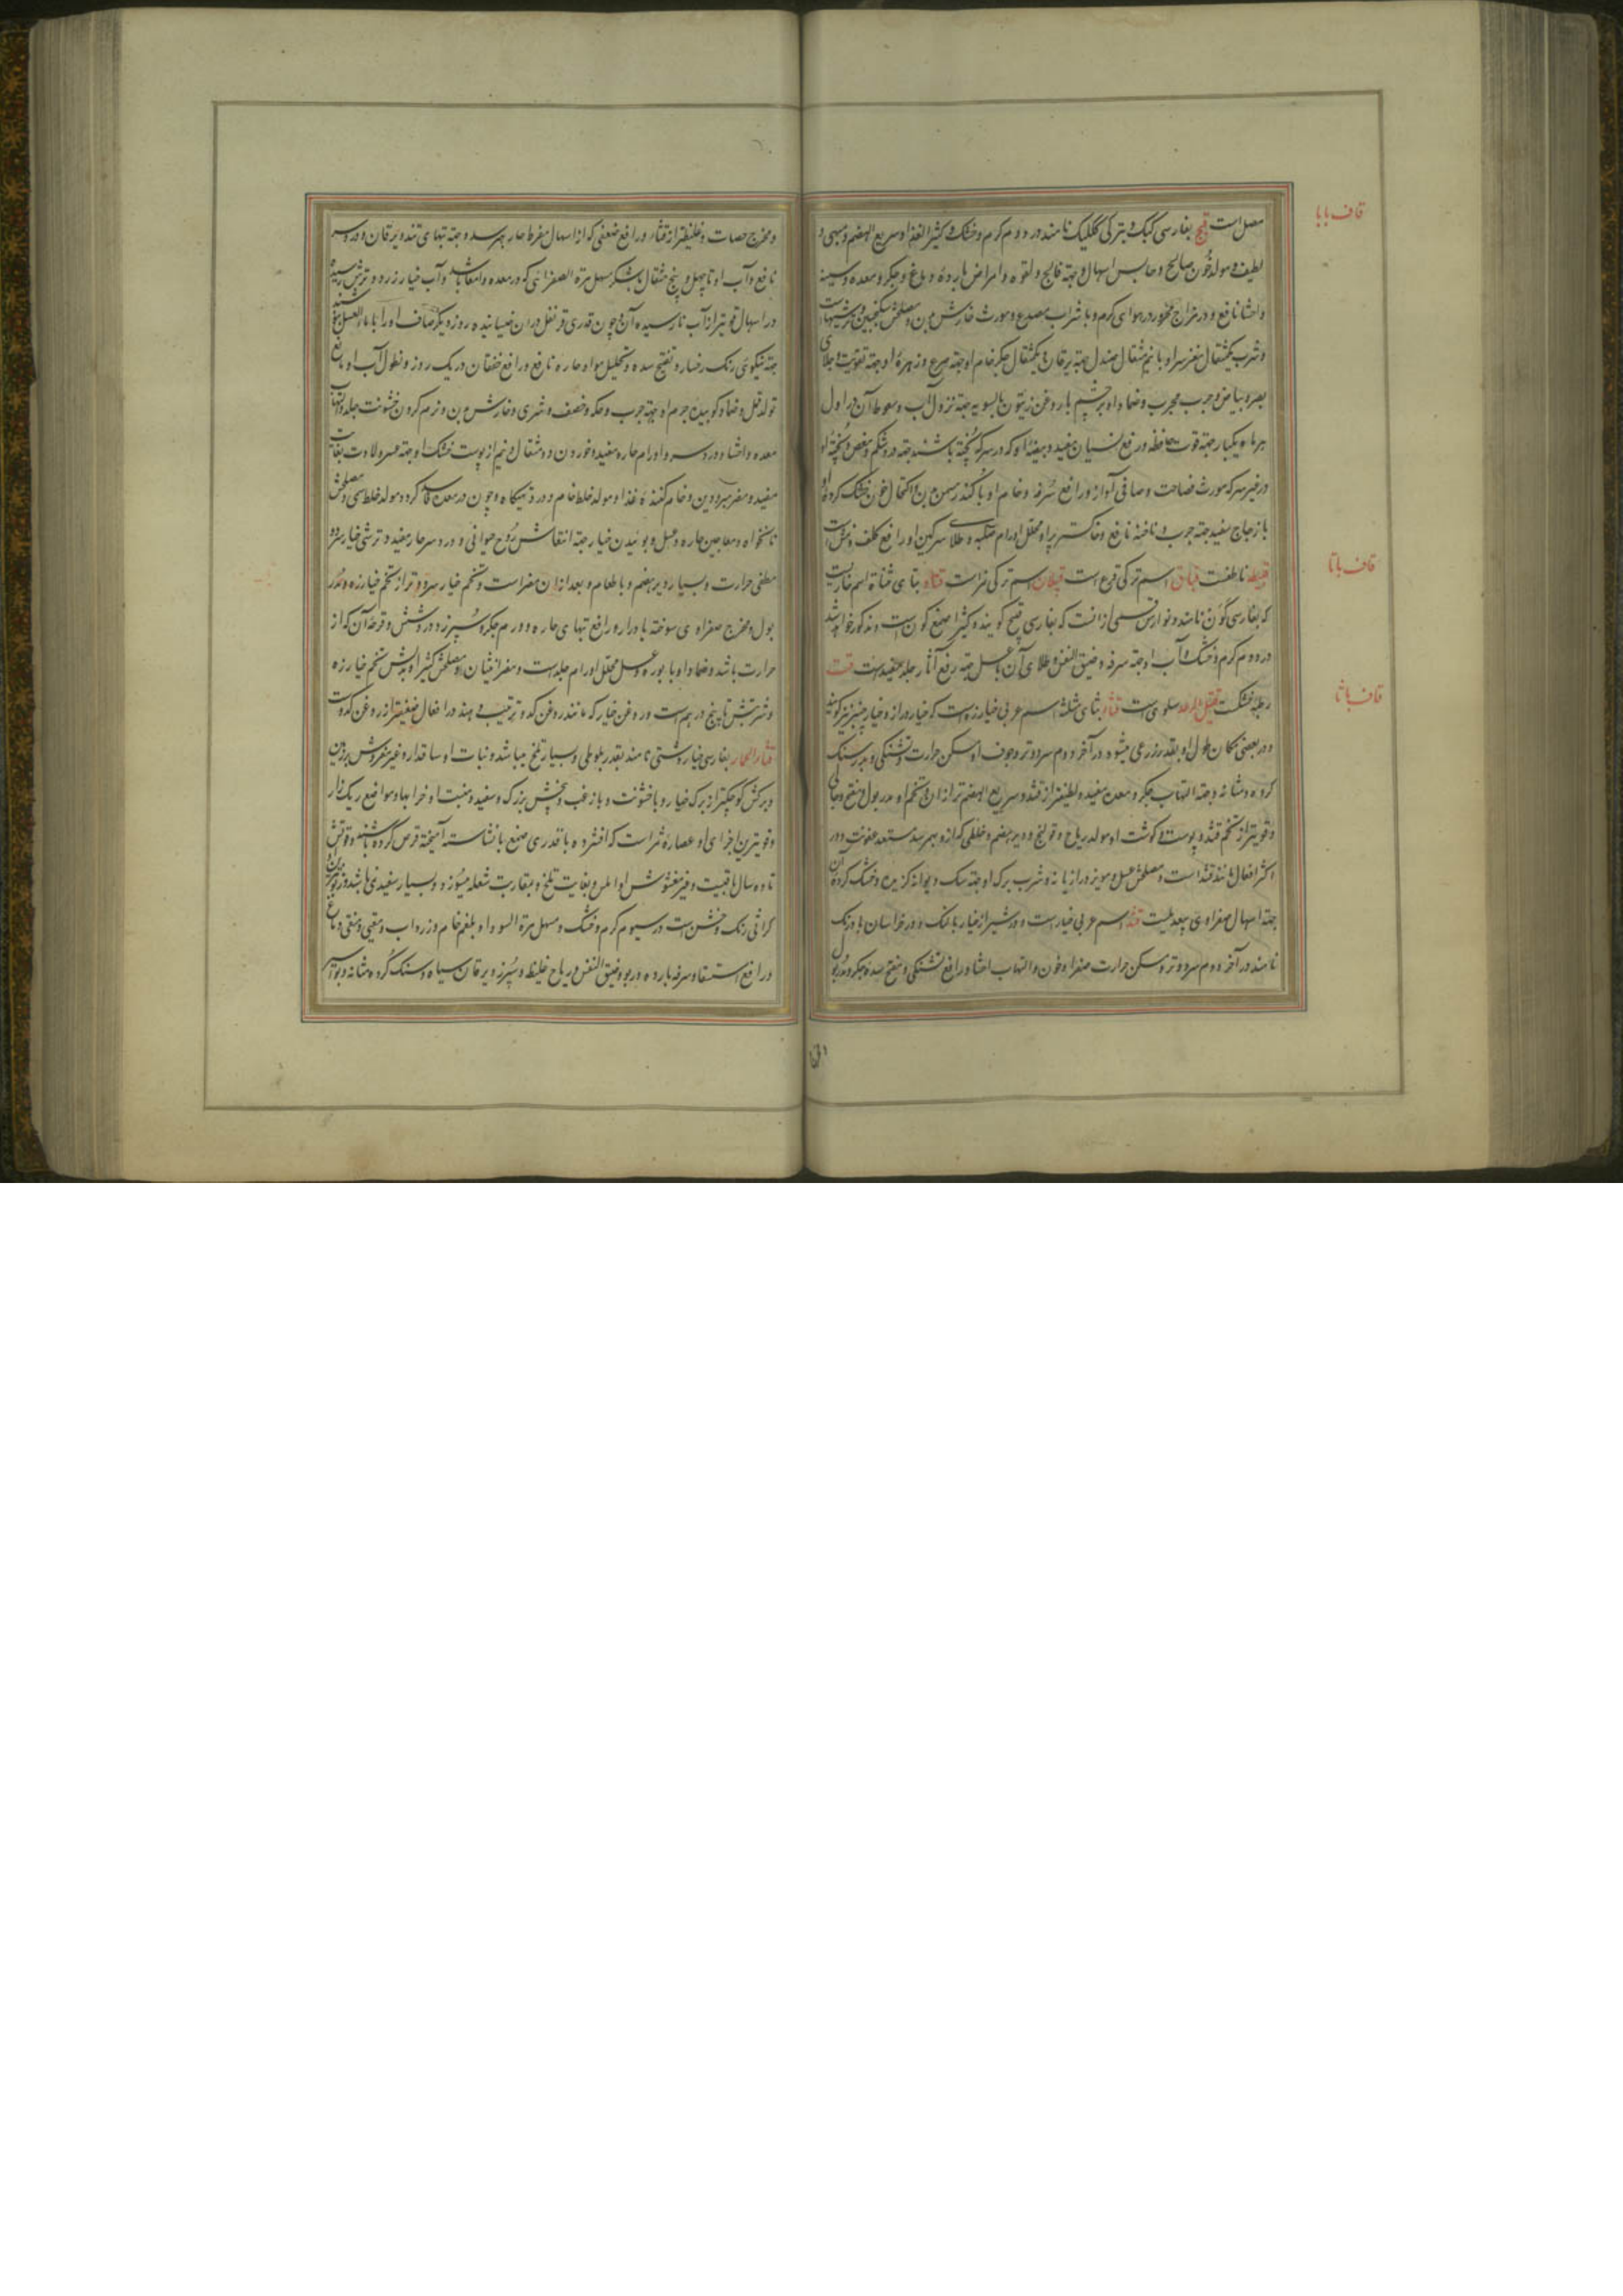 قاف با با
مصل است قبج بفارسی کبک و بترکی ککلیک نامند در دوم کرم و خشک و کثیرالغذا و سریع الهضم و مبهی و
لطیف و مولد خون صالح و حابس اسهال و جهة فالج و لقوه و امراض بارده دماغ و جکر و معده و سینه
واحشا نافع و در مزاج محرور در هوای کرم و با شراب مصدع و مورث خارش بدن و مصلحش سکنجبین و ترشیهاست
و شرب یکمثقال مغز سر او با نیم مثقال صندل جهة یرقان و یکمثقال جکر خام او جهة صرع و زهرهٔ او جهة تقویت و جلای
بصر و بیاض و جرب مجرب و ضماد او بر چشم با روغن زیتون بالسویه جهة نزول آب و سعوط آن در اول
هر ماه یکبار جهة قوت حافظه و رفع نسیان مفید و بیضهٔ او که در سرکه پخته باشند جهة درد شکم و مغص و پختهٔ او
در غیر سرکه مورث فصاحت و صافی آواز و رافع سرفه و خام او با کندر مسمن بدن و اکتحال خون خشک کردهٔ او
با زجاج سفید جهة جرب و ناخنه نافع و خاکستر پر او محلل اورام صلبه و طلای سرکین او رافع کلف و نمش است
قاف با تا
قبیطه ناطفست قباق اسم ترکی قرع است قپلان اسم ترکی نمر است قتاد بتای مثناة اسم خاریست
که بفارسی کون نامند و نوارس قسمی از انست که بفارسی قتج کویند و کثیرا صمغ کون است و مذکور خواهد شد
در دوم کرم و خشک و آب او جهة سرفه و ضیق النفس و طلای آن با عسل جهة رفع آثار جلد مفید است قت
قاف با ثا
رطبهٔ خشکست قتیل الرعد سلوی است قثاء بثای مثلثه اسم عربی خیارزه است که خیار دراز و خیار چنبر نیز کویند
و در بعضی مکان طول او بقدر زرعی میشود در آخر دوم سرد و تر و جوف او مسکن حرارت و تشنکی و مدر سنک
کرده و مثانه و جهة التهاب جکر و معده مفید و لطیفتر از قثد و سریع الهضم تر از ان و تخم او مدر بول و مفتح و جالی
و قویتر از تخم قثد و پوست و کوشت او مولد ریاح و قولنج و دیر هضم و خلطی که ازو بهم رسد مستعد عفونت و در
اکثر افعال مانند قثد است و مصلحش عسل و مویز و رازیانه و شرب برک او جهة سک دیوانه کزیده و خشک کردهٔ آن
جهة اسهال صفراوی بیعدیلست قثد اسم عربی خیار است و در شیراز خیار بالنک و در خراسان بادرنک
نامند در آخر دوم سرد و تر و مسکن حرارت صفرا و خون و التهاب احشا و رافع تشنکی و مفتح سدهٔ جکر و مدر بول
و مخرج حصات و غلیظتر از قثاء و رافع ضعفی که از اسهال مفرط حار بهم رسد و جهة تبهای تند و یرقان و درد سر
نافع و آب او تا چهل و پنج مثقال با شکر مسهل مرة الصفرائی که در معده و امعا باشد و آب خیار زرد و ترش رسیده
در اسهال قویتر از آب نارسیده آن و چون قدری قرنفل در ان خیسانیده روز دیکر صاف او را با ماء العسل بنوشند
جهة نیکوی رنک رخسار و تفتیح سده و تحلیل مواد حاره نافع و رافع خفقان در یک روز و نطول آب او مانع
تولد قمل و ضماد کوبیدهٔ جرم او جهة جرب و حکه و حصف و شری و خارش بدن و نرم کردن خشونت جلد و التهاب
معده و احشا و درد سر و اورام حاره مفید و خوردن دو مثقال و نیم از پوست خشک او جهة عسر ولادت بغایت
مفید و مضر مبرودین و خام کنندهٔ غذا و مولد خلط خام و درد تهیکاه و چون در معده فاسد کردد مولد خلط سمی و مصلحش
نانخواه و معاجین حاره و عسل و بوئیدن خیار جهة انتعاش روح حیوانی و درد سر حار مفید و ترشی خیار سرد و
مطفی حرارت و بسیار دیر هضم و با طعام و بعد از ان مضر است و تخم خیار سرد و تر از تخم خیارزه و مدر
بول و مخرج صفراوی سوخته بادرار و رافع تبهای حاره و ورم جکر و سپرز و درد شش و قرحهٔ آن که از
حرارت باشد و ضماد او با بوره و عسل محلل اورام جلد است و مضر مثانه و مصلحش کثیرا و بدلش تخم خیارزه
و شربتش تا پنج درهم است و روغن خیار که مانند روغن کدو ترتیب دهند در افعال ضعیفتر از روغن کدوست
قثاء الحمار بفارسی خیار دشتی نامند بقدر بلوطی و بسیار تلخ میباشد و نبات او ساقدار و غیر مفروش بر زمین
و برکش کوچکتر از برک خیار و با خشونت و با زغب و بیخش بزرک و سفید و منبت او خرابها و مواضع ریک زار
و قویترین اجزای او عصارهٔ ثمر است که افشرده با قدری صمغ با نشاسته آمیخته قرص کرده باشند و قوتش
تا ده سال باقیست و غیر مغشوش او املس و بغایت تلخ و بمقاربت شعله میسوزد و بسیار سفید نمی باشد و زبون ترین او
کراثی رنک و خشن است در سیوم کرم و خشک و مسهل مرة السودا و بلغم خام و زرداب و مقیی و منقی دماغ
و رافع استسقا و سرفه بارده و ربو و ضیق النفس و ریاح غلیظ و سپرز و یرقان سیاه و سنک کرده و مثانه و بواسیر